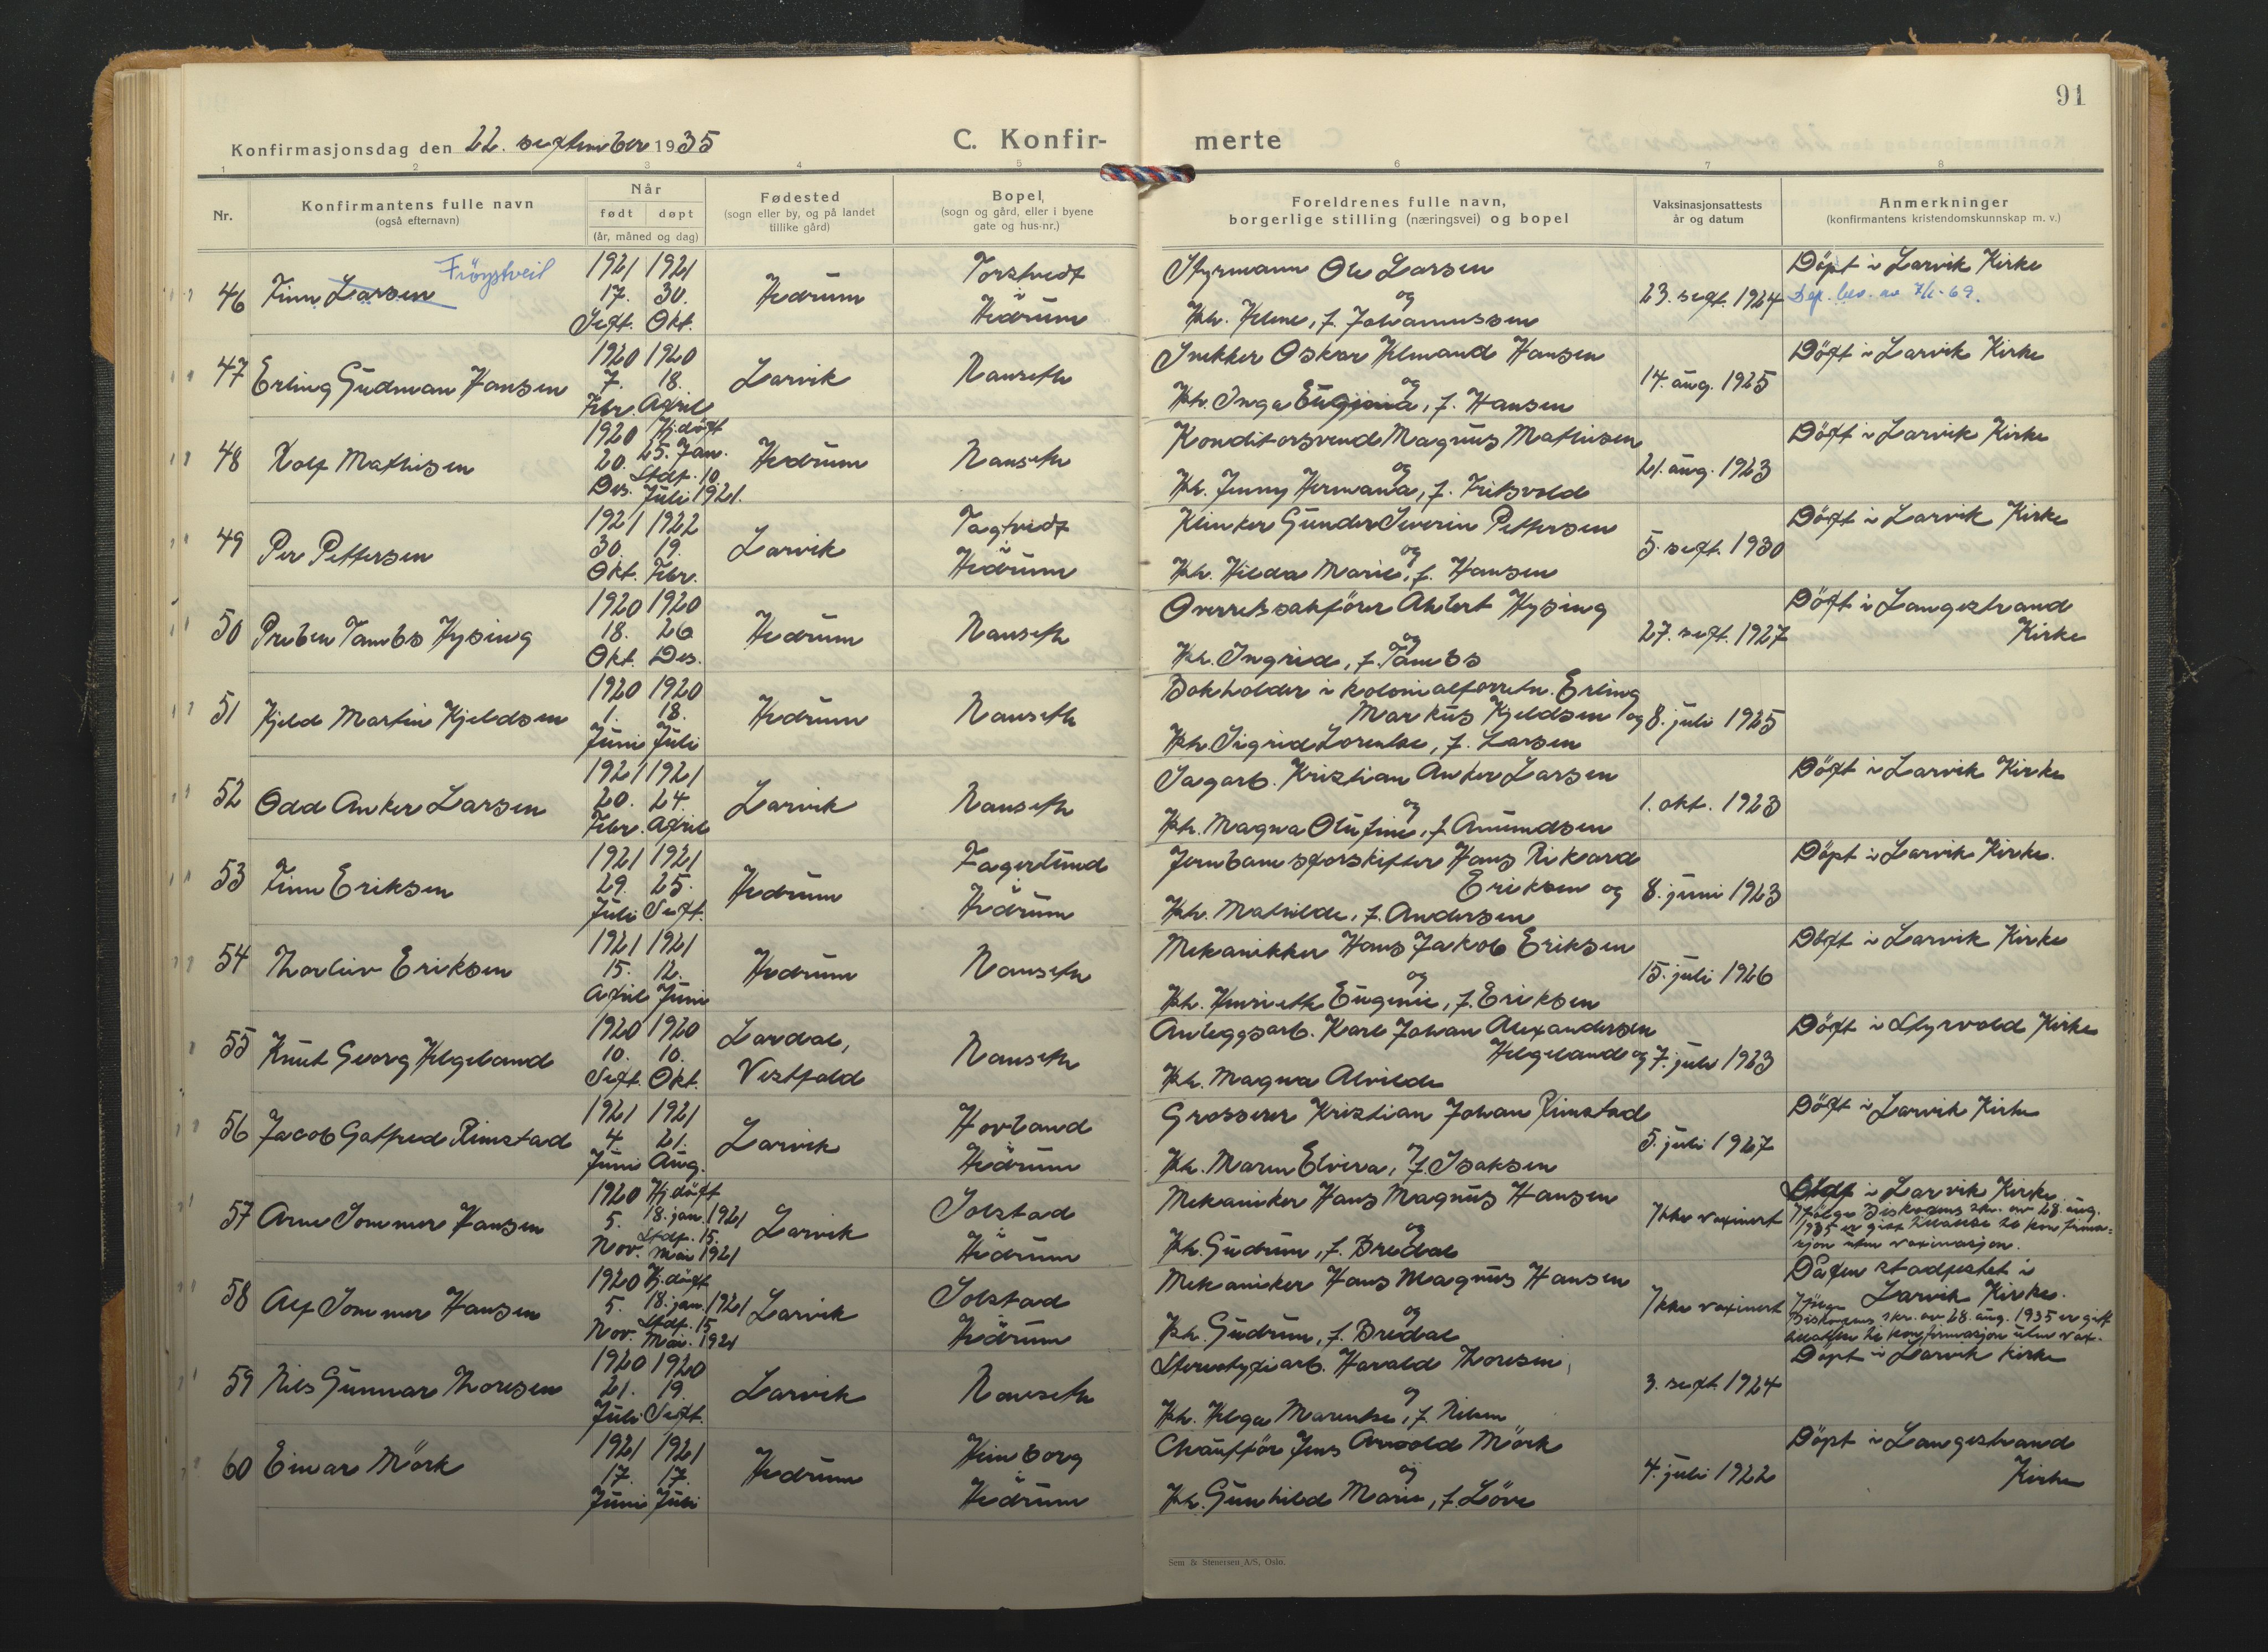 91
Konfirmasjonsdag den 22. september 1935
C. Konfir- merte
1 2 3 4 5 6 7 8
Nr.
Konfirmantens fulle navn
(også efternavn)
Når
født døpt
(år, måned og dag)
Fødested
(sogn eller by, og på landet
tillike gård)
Bopel,
(sogn og gård, eller i byene
gate og hus-nr.)
Foreldrenes fulle navn,
borgerlige stilling (næringsvei) og bopel
Vaksinasjonsattests
år og datum
Anmerkninger
(konfirmantens kristendomskunnskap m. v.)
46 Finn Larsen Fröystveit
1921 17. Sept.
1921 30. Okt.
Hedrum
Torstvedt i Hedrum
Styrmann Ole Larsen
og
Hh. Helene, f. Johannessen
23. sept. 1924
Döpt i Larvik Kirke
Dep. bev. av 7/2-69.
47 Erling Gudman Hansen
1920 7. Febr.
1920 18. April
Larvik
Nanseth
Snekker Oskar Helmand Hansen
og
Hh. Inga Eugenia, f. Hansen
14. aug. 1925
Döpt i Larvik Kirke
48 Rolf Mathisen
1920 20. Des.
Hj. döpt 25. Jan. Stdf. 10. Juli 1921.
Hedrum
Nanseth
Konditorsvend Magnus Mathisen
og
Hh. Jenny Hermana, f. Fritsvold
21. aug. 1923
Döpt i Larvik Kirke
49 Per Pettersen
1921 30. Okt.
1922 19. Febr.
Larvik
Tagtvedt i Hedrum
Klinker Gunder Severin Pettersen
og
Hh. Hilda Marie, f. Hansen
5. sept. 1930
Döpt i Larvik Kirke
50 Preben Tambs Hysing
1920 18. Okt.
1920 26 Des.
Hedrum
Nanseth
Overretssakförer Ahlert Hysing
og
Hh. Ingrid, f. Tambs
27. sept. 1927
Döpt i Langestrand
Kirke
51 Kjeld Martin Kjeldsen
1920 1. Juni
1920 18. Juli
Hedrum
Nanseth
Bokholder i kolonialforretn. Erling
Markus Kjeldsen og
Hh. Sigrid Lorentse, f. Larsen
8. juli 1925
52 Odd Anker Larsen
1921 20. Febr.
1921 24. April
Larvik
Nanseth
Sagarb. Kristian Anker Larsen
og
Hh. Magna Olufine, f. Amundsen
1. okt. 1923
Döpt i Larvik Kirke
53 Finn Eriksen
1921 29. Juli
1921 25. Sept.
Hedrum
Fagerlund i Hedrum
Jernbaneskifter Hans Rikard
Eriksen og
Hh. Mathilde, f. Andersen
8. juni 1923
Döpt i Larvik Kirke.
54 Thorleiv Eriksen
1921 15. April
1921 12. Juni
Hedrum
Nanseth
Mekanikker Hans Jakob Eriksen
og
Hh. Henriette Eugenie, f. Eriksen
15. juli 1926
Döpt i Larvik Kirke
55 Knut Georg Helgeland
1920 10. Sept.
1920 10. Okt.
Lardal,
Vestfold
Nanseth
Anleggsarb. Karl Johan Alexandersen
Helgeland og
Hh. Magna Alvilde
7. juli 1923
Döpt i Styrvold Kirke
56 Jacob Gotfred Rimstad
1921 4 Juni
1921 21. Aug.
Larvik
Hovland i Hedrum
Grosserer Kristian Johan Rimstad
og
Hh. Maren Elvira, f. Isaksen
5. juli 1927
Döpt i Larvik Kirke
57 Arne Sommer Hansen
1920 5. Nov.
Hj. döpt 18. jan. 1921 Stdf. 15. mai 1921
Larvik
Solstad i Hedrum
Mekaniker Hans Magnus Hansen
og
Hh. Gudrun, f. Bredal
Ikke vaxinert
Stdf i Larvik Kirke.
Ifölge Biskopens skr. av 28. aug.
1935 er gitt tillatelse til konfirma-
sjon uten vaxinasjon.
58 Alf Sommer Hansen
1920 5. Nov.
Hj. döpt 18. jan. 1921 Stdf. 15 Mai. 1921
Larvik
Solstad i Hedrum
Mekaniker Hans Magnus Hansen
og
Hh. Gudrun, f. Bredal
Ikke vaxinert
Dåpen stadfestet i
Larvik Kirke.
Ifölge
Biskopens skr. av 28. aug. 1935 er gitt
tillatelse til konfirmasjon uten vax.
59 Nils Gunnar Thoresen
1920 21. Juli
1920 19. Sept.
Larvik
Nanseth
Stereotypiarb. Harald Thoresen
og
Hh. Helga Marentse, f. Nilsen
3. sept. 1924
Döpt i Larvik Kirke
60 Einar Mörk
1921 17. Juni
1921 17. Juli
Hedrum
Heimborg i Hedrum
Chaufför Jens Arnold Mörk
og
Hh. Gunhild Marie, f. Löve
4. juli 1922
Döpt i Langestrand
Kirke
Sem & Stenersen A/S, Oslo.